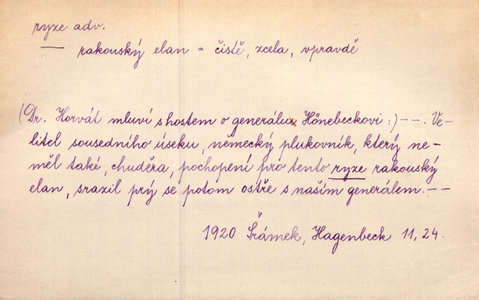 ryze adv.
rakouský elan = čistě, zcela, vpravdě
(Dr. Horvát mluví s hostem o generálu Hönebeckovi:) – –. Ve-
litel sousedního úseku, německý plukovník, který ne-
měl také, chuděra, pochopení pro tento ryze rakouský
elan, srazil prý se potom ostře s naším generálem. – –
1920 Šrámek, Hagenbeck 11, 24.